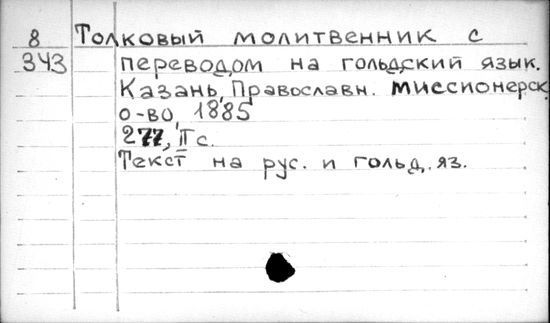 8 Толковый молитвенник с
343 переводом на гольдский язык.
Казань, Православн. миссионерск.
о-во, 1885
277, II с.
Текст на рус. и гольд. яз.